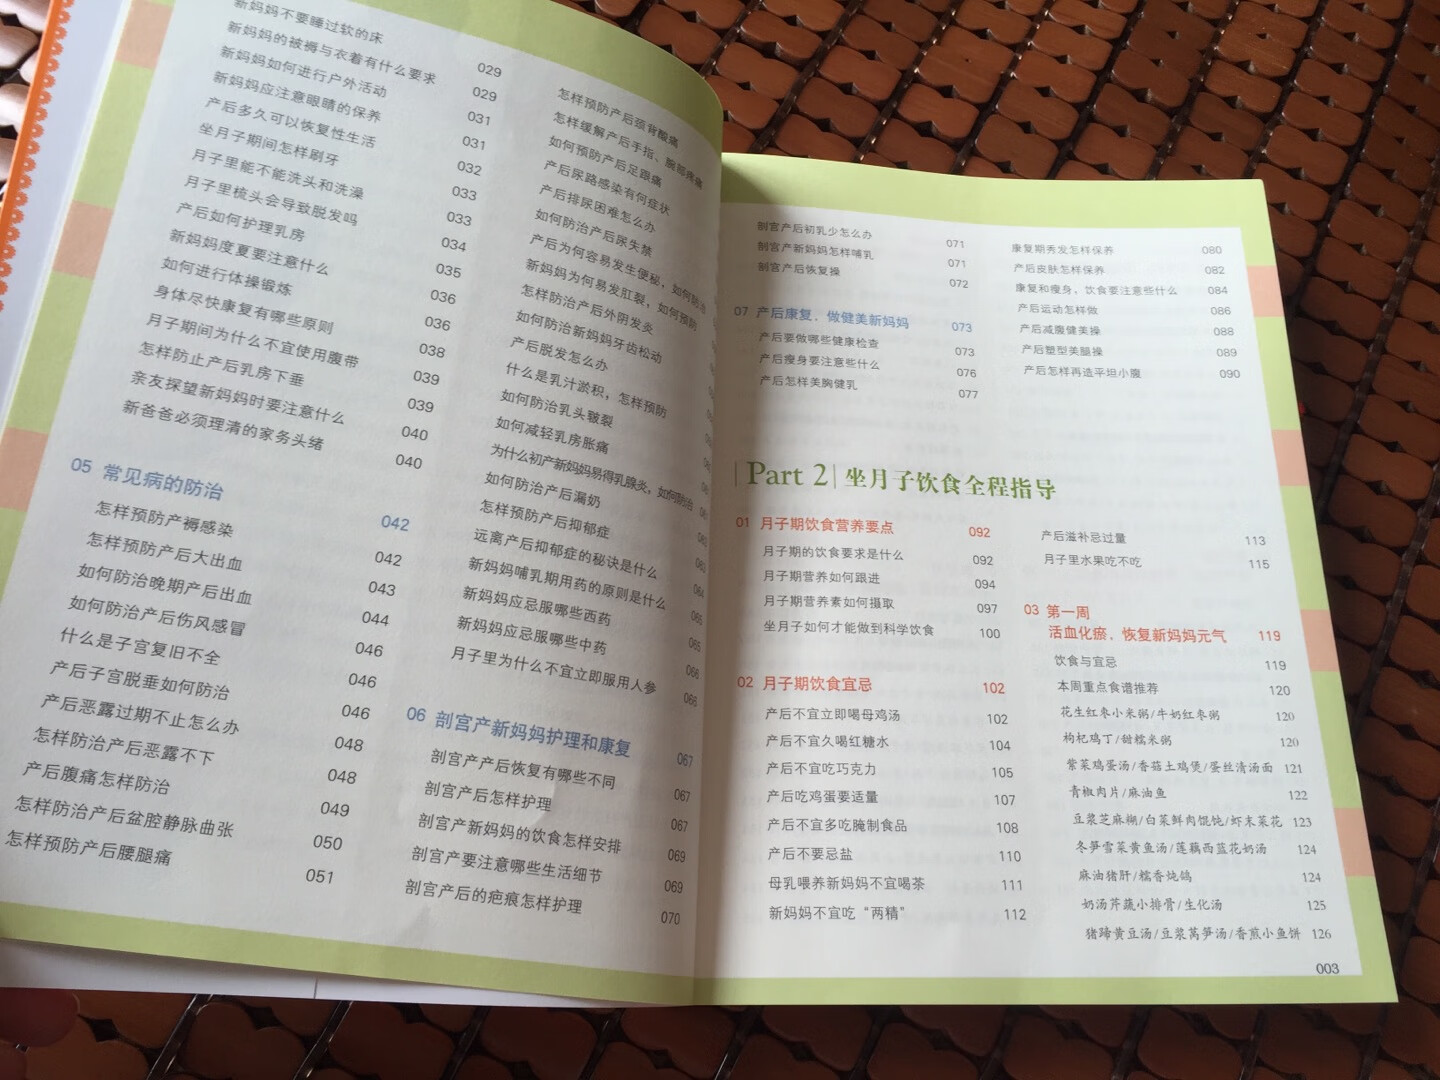 新妈妈不要睡过软的床 029
新妈妈的被褥与衣着有什么要求 029
新妈妈如何进行户外活动 031
新妈妈应注意眼睛的保养 031
产后多久可以恢复性生活 032
坐月子期间怎样刷牙 033
月子里能不能洗头和洗澡 033
月子里梳头会导致脱发吗 034
产后如何护理乳房 035
新妈妈度夏要注意什么 036
如何进行体操锻炼 036
身体尽快康复有哪些原则 038
月子期间为什么不宜使用腹带 039
怎样防止产后乳房下垂 039
亲友探望新妈妈时要注意什么 040
新爸爸必须理清的家务头绪 040
05 常见病的防治 042
怎样预防产褥感染 042
怎样预防产后大出血 043
如何防治晚期产后出血 044
如何防治产后伤风感冒 046
什么是子宫复旧不全 046
产后子宫脱垂如何防治 046
产后恶露过期不止怎么办 048
怎样防治产后恶露不下 048
产后腹痛怎样防治 049
怎样防治产后盆腔静脉曲张 050
怎样预防产后腰腿痛 051
怎样预防产后颈背酸痛
怎样缓解产后手指、腕部疼痛
如何预防产后足跟痛
产后尿路感染有何症状
产后排尿困难怎么办
如何防治产后尿失禁
产后为何容易发生便秘，如何防治
新妈妈为何易发肛裂，如何预防
怎样防治产后外阴发炎
如何防治新妈妈牙齿松动
产后脱发怎么办
什么是乳汁淤积，怎样预防
如何防治乳头皲裂
如何减轻乳房胀痛
为什么初产新妈妈易得乳腺炎，如何防治
如何防治产后漏奶
怎样预防产后抑郁症
远离产后抑郁症的秘诀是什么 064
新妈妈哺乳期用药的原则是什么 065
新妈妈应忌服哪些西药 065
新妈妈应忌服哪些中药 066
月子里为什么不宜立即服用人参 066
06 剖宫产新妈妈护理和康复 067
剖宫产产后恢复有哪些不同 067
剖宫产后怎样护理 067
剖宫产新妈妈的饮食怎样安排 069
剖宫产要注意哪些生活细节 069
剖宫产后的疤痕怎样护理 070
剖宫产后初乳少怎么办 071
剖宫产新妈妈怎样哺乳 071
剖宫产后恢复操 072
07 产后康复，做健美新妈妈 073
产后要做哪些健康检查 073
产后瘦身要注意些什么 076
产后怎样美胸健乳 077
康复期秀发怎样保养 080
产后皮肤怎样保养 082
康复和瘦身，饮食要注意些什么 084
产后运动怎样做 086
产后减腹健美操 088
产后塑型美腿操 089
产后怎样再造平坦小腹 090
Part 2 坐月子饮食全程指导
01 月子期饮食营养要点 092
月子期的饮食要求是什么 092
月子期营养如何跟进 094
月子期营养素如何摄取 097
坐月子如何才能做到科学饮食 100
02 月子期饮食宜忌 102
产后不宜立即喝母鸡汤 102
产后不宜久喝红糖水 104
产后不宜吃巧克力 105
产后吃鸡蛋要适量 107
产后不宜多吃腌制食品 108
产后不要忌盐 110
母乳喂养新妈妈不宜喝茶 111
新妈妈不宜吃“两精” 112
产后滋补忌过量 113
月子里水果吃不吃 115
03 第一周
活血化瘀，恢复新妈妈元气 119
饮食与宜忌 119
本周重点食谱推荐 120
花生红枣小米粥/牛奶红枣粥 120
枸杞鸡丁/甜糯米粥 120
紫菜鸡蛋汤/香菇土鸡煲/蛋丝清汤面 121
青椒肉片/麻油鱼 122
豆浆芝麻糊/白菜鲜肉馄饨/虾末菜花 123
冬笋雪菜黄鱼汤/莲藕西蓝花奶汤 124
麻油猪肝/糯香炖鸽 124
奶汤芹蔬小排骨/生化汤 125
猪蹄黄豆汤/豆浆莴笋汤/香煎小鱼饼 126
003